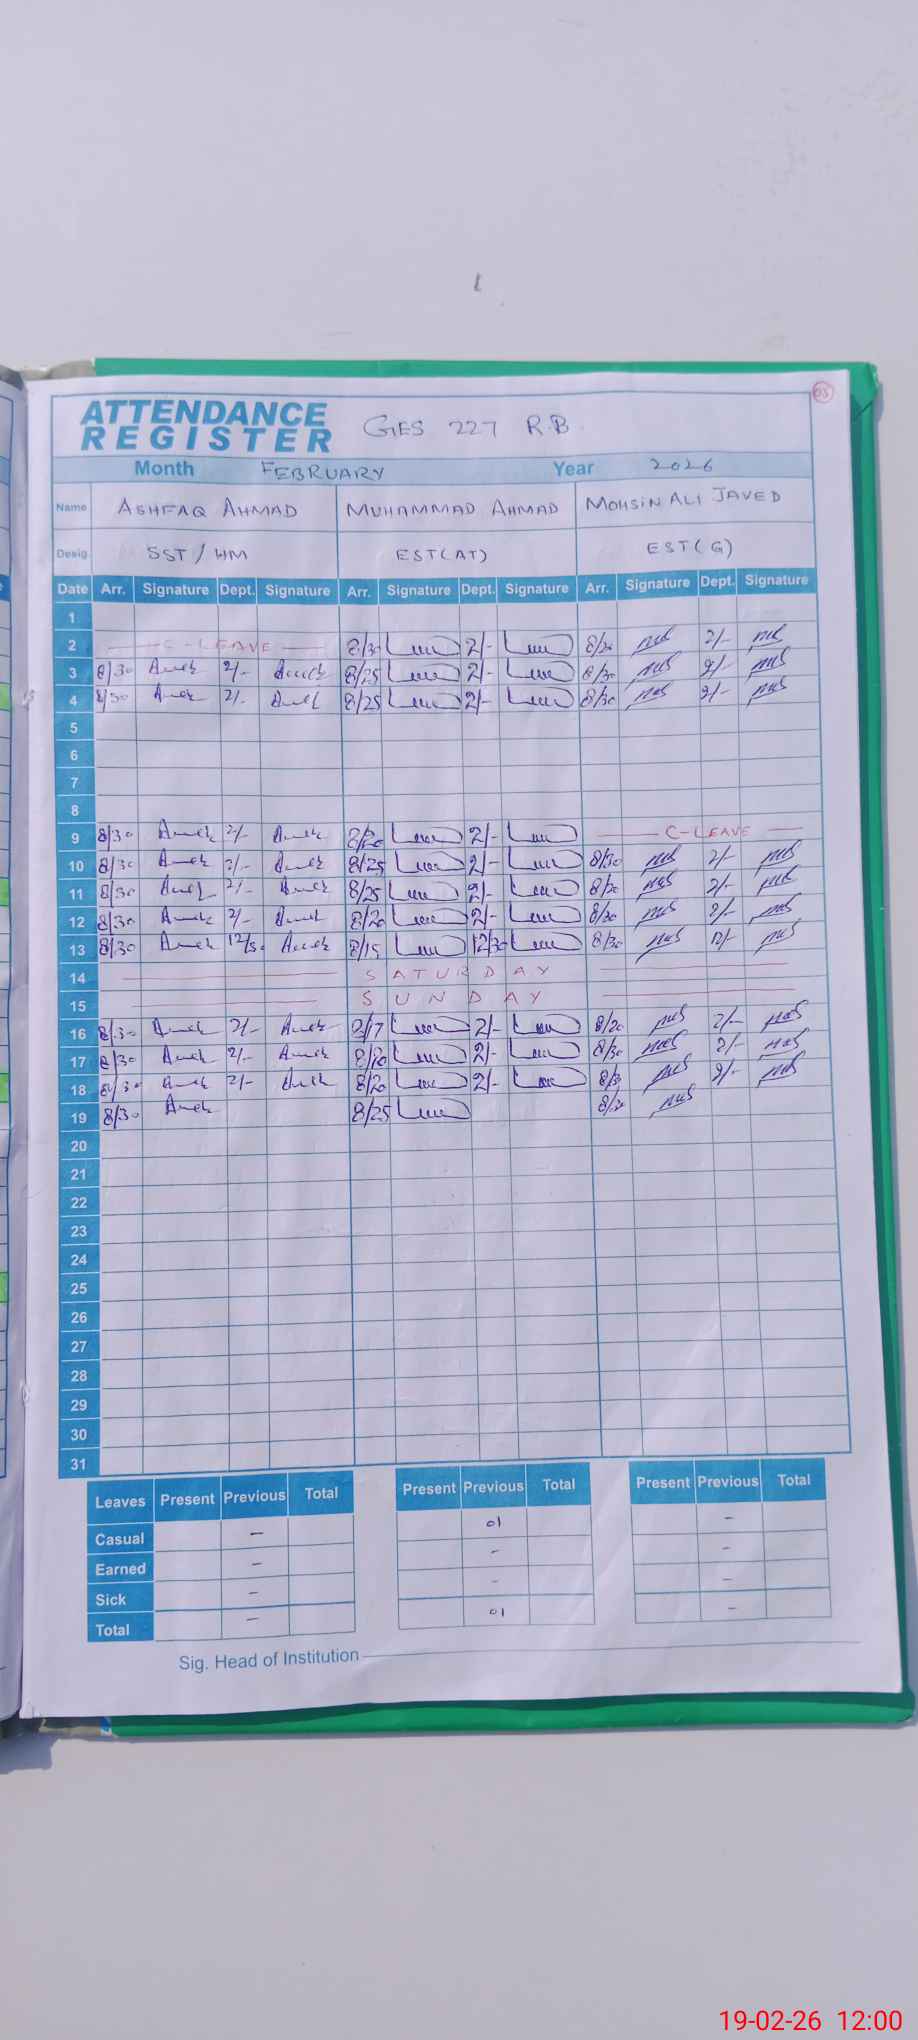 03
ATTENDANCE
REGISTER
GES 227 R.B
Month FEBRUARY Year 2026
Name ASHFAQ AHMAD MUHAMMAD AHMAD MOHSIN ALI JAVED
Desig SST / HM EST(AT) EST(G)
Date Arr. Signature Dept. Signature Arr. Signature Dept. Signature Arr. Signature Dept. Signature
1
2 C-LEAVE 8/30 2/- 8/20 2/-
3 8/30 2/- 8/25 2/- 8/30 2/-
4 8/30 2/- 8/25 2/- 8/30 2/-
5
6
7
8
9 8/30 2/- 8/20 2/- C-LEAVE
10 8/30 2/- 8/25 2/- 8/30 2/-
11 8/30 2/- 8/25 2/- 8/20 2/-
12 8/30 2/- 8/20 2/- 8/30 2/-
13 8/30 12/30 8/15 12/30 8/30 12/-
14 SATURDAY
15 SUNDAY
16 8/30 2/- 8/17 2/- 8/20 2/-
17 8/30 2/- 8/20 2/- 8/30 2/-
18 8/30 2/- 8/20 2/- 8/30 2/-
19 8/30 8/25 8/20
20
21
22
23
24
25
26
27
28
29
30
31
Leaves Present Previous Total Present Previous Total Present Previous Total
Casual - 01 -
Earned - - -
Sick - - -
Total - 01 -
Sig. Head of Institution
19-02-26 12:00